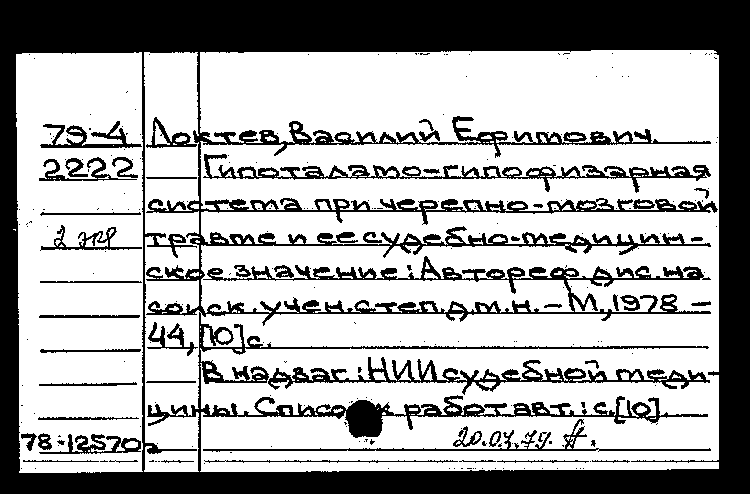 79-4 Локтев, Василий Ефимович.
2222 Гипоталамо-гипофизарная
система при черепно-мозговой
2 экз травме и ее судебно-медицин-
ское значение: Автореф. дис. на
соиск. учен. степ. д.м.н. - М., 1978 -
44, [10] с.
В надзаг.: НИИ судебной меди-
цины. Список работ авт.: с. [10].
78-12570а 20.04.79.